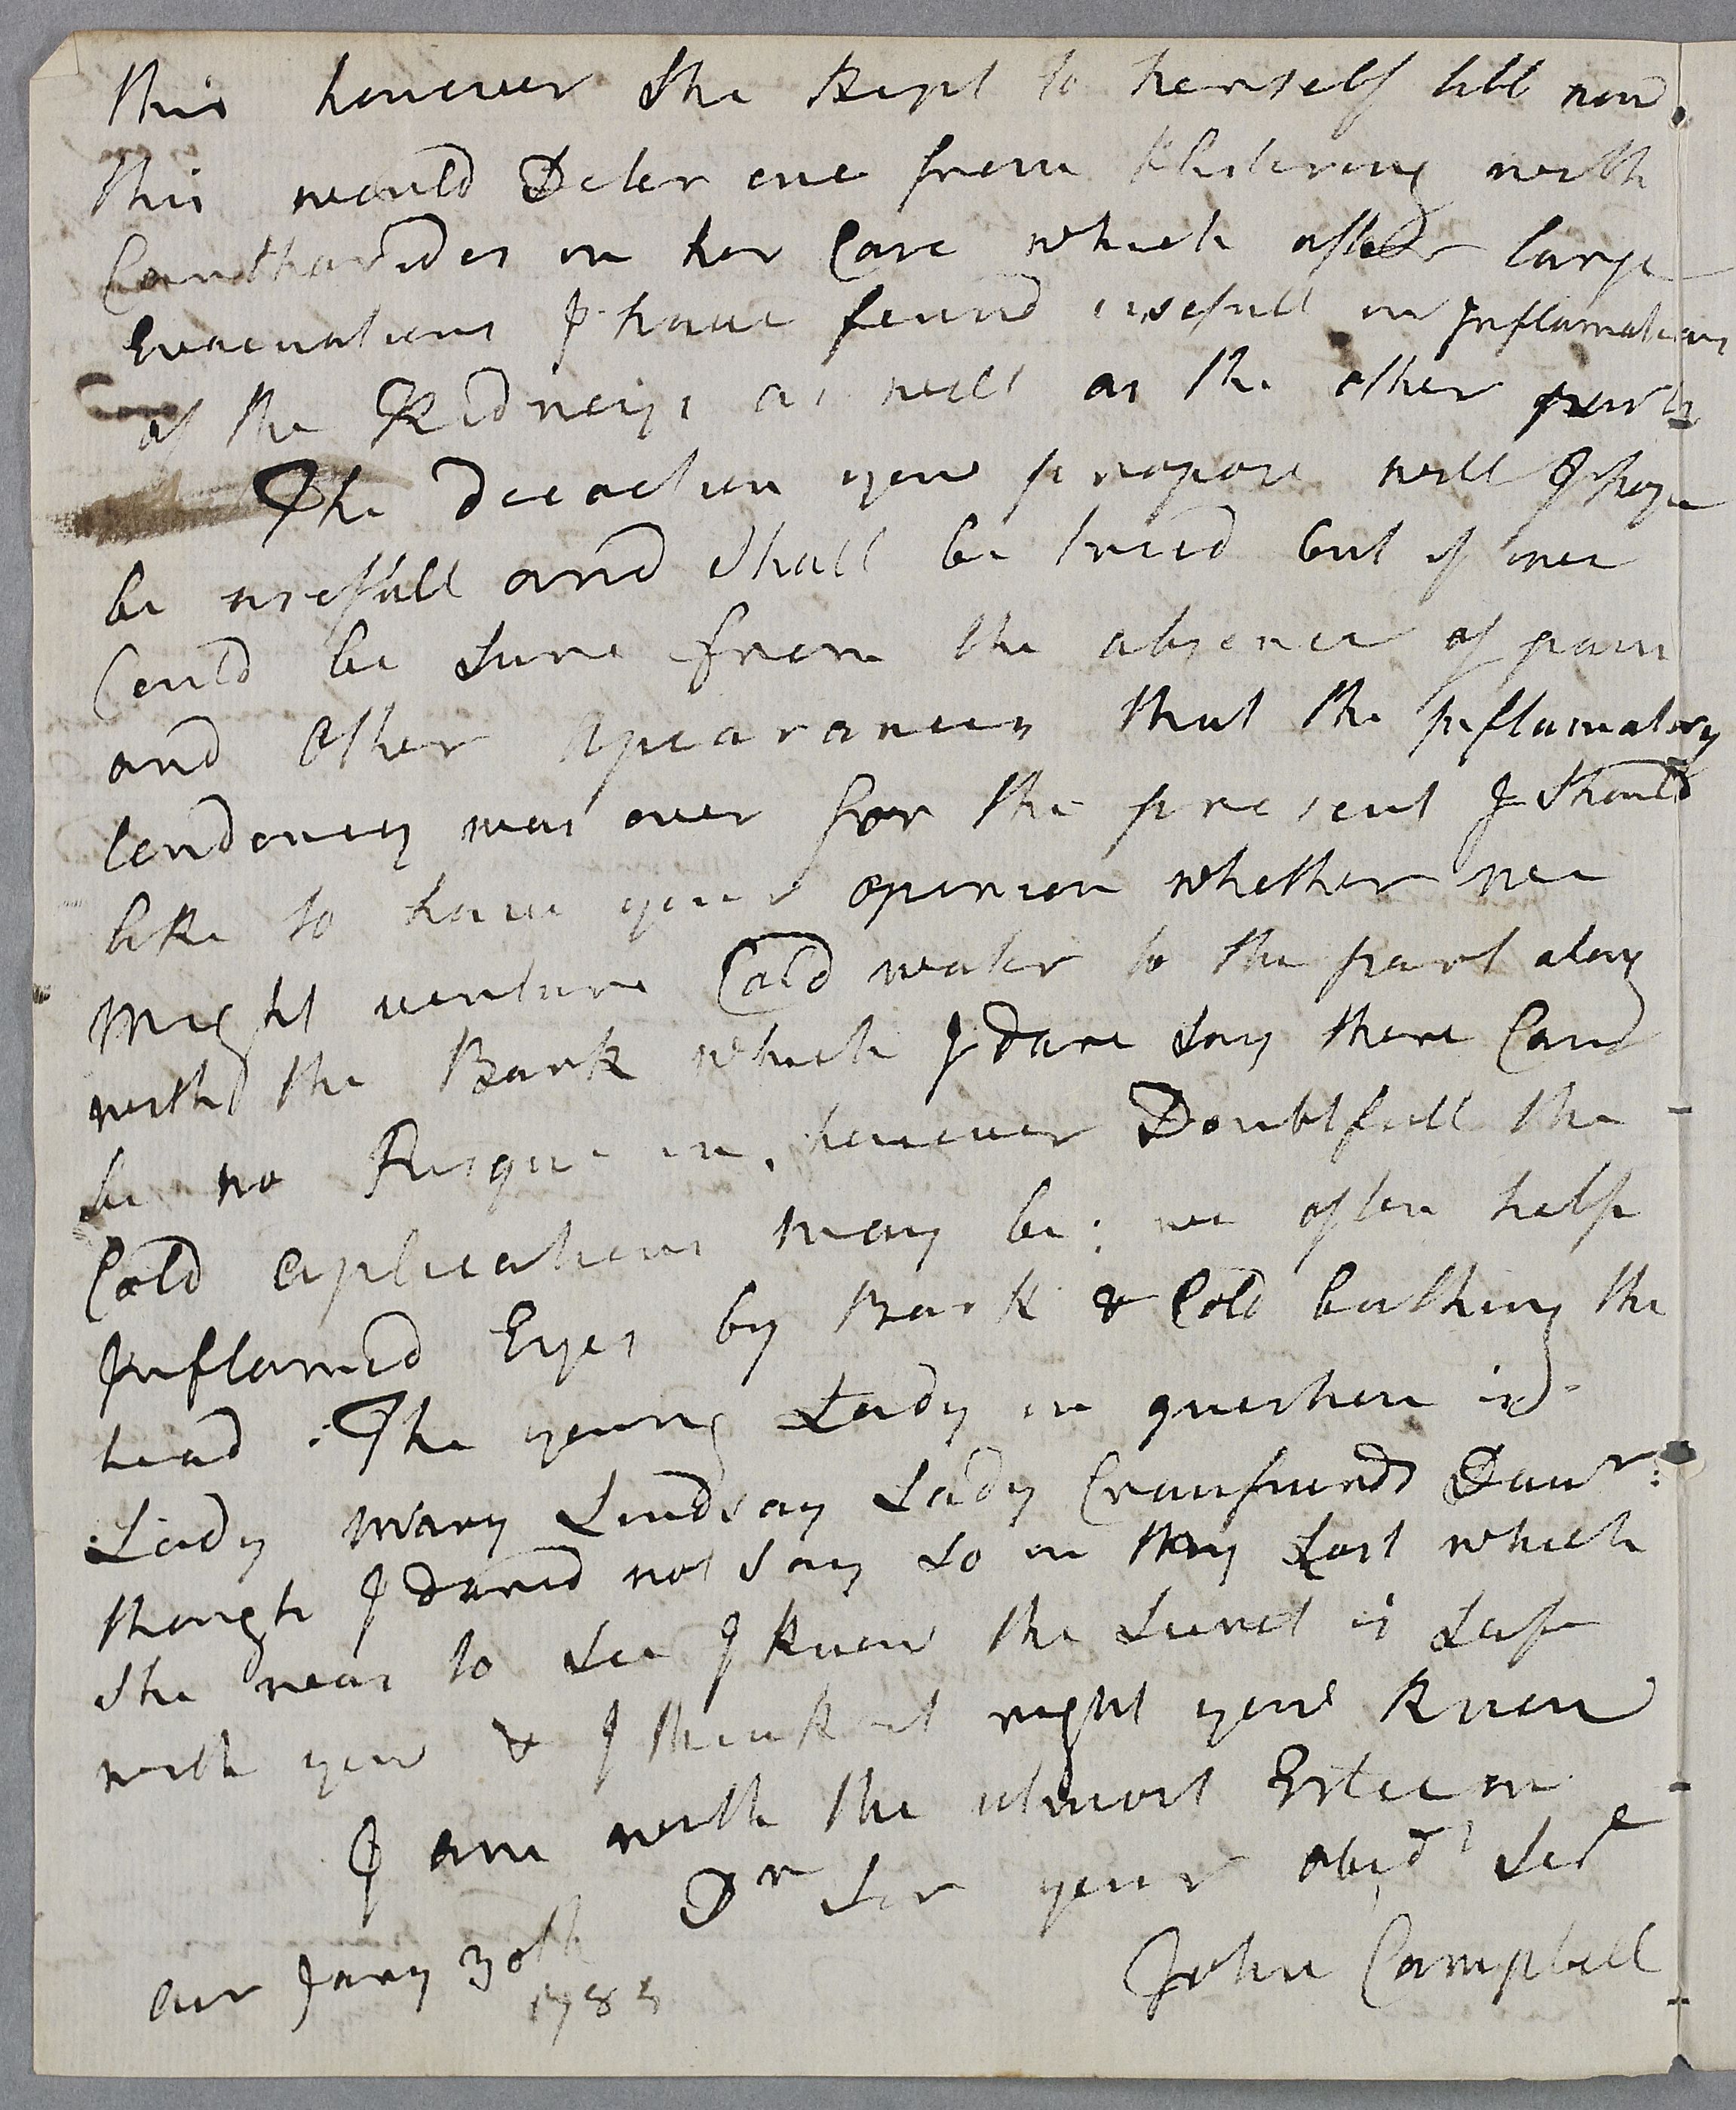 this however She Kept to herself till now.
this would Deter one from blistering with
Cantharides in her Case which after large
Evacuations I have found usefull in Inflamations
of the Kidneys as well as the other parts
The decoction you propose will I hope
be usefull and Shall be tried but if one
Could be Sure from the absence of pain
and other apearances that the Inflamatory
tendency was over for the present I Should
like to have your opinion whether we
might venture Cold water to the part along
with the Bark which I dare Say there Can
be no Risque in, however Doubtfull the
Cold aplications may be: we often help
Inflamed Eyes by Bark & Cold bathing the
head. The young Lady in question is
Lady Mary Lindsay Lady Craufurds Daur:
though I dared not Say So in my Last which
She was to See I know the Secret is Safe
with you & I think it right you know
I am with the utmost Esteem
Dr Sir your obedt Sert
John Campbell
air Jany 30th
1788